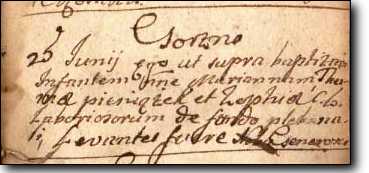 Czorzno
25 Junij ego ut supra baptizavi
Infantem nne Mariannam Tho-
mæ pieniązek et Zophiæ C. L.
Laboriosorum de fundo plebana-
li, Levantes fuere